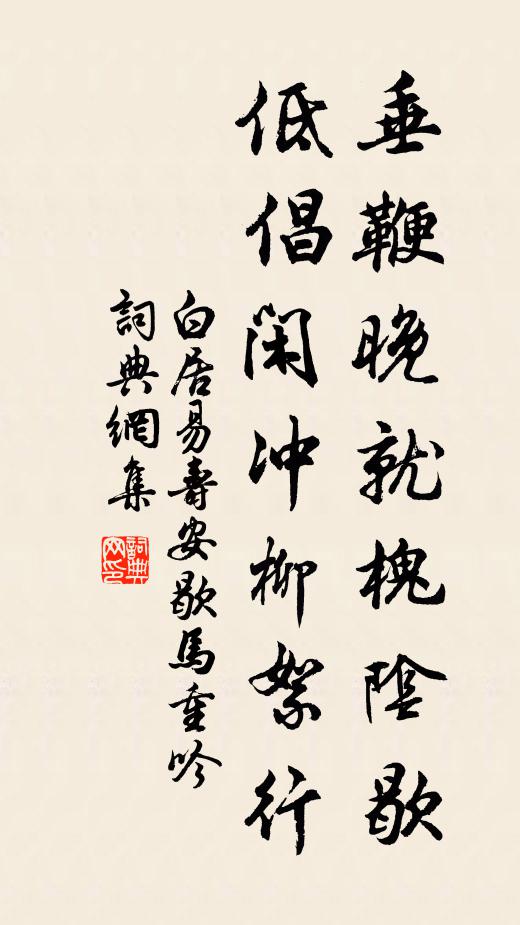 垂鞭晚就槐陰歇
低倡閑沖柳絮行
白居易壽安歇馬重吟
詞典網集
詞典網印